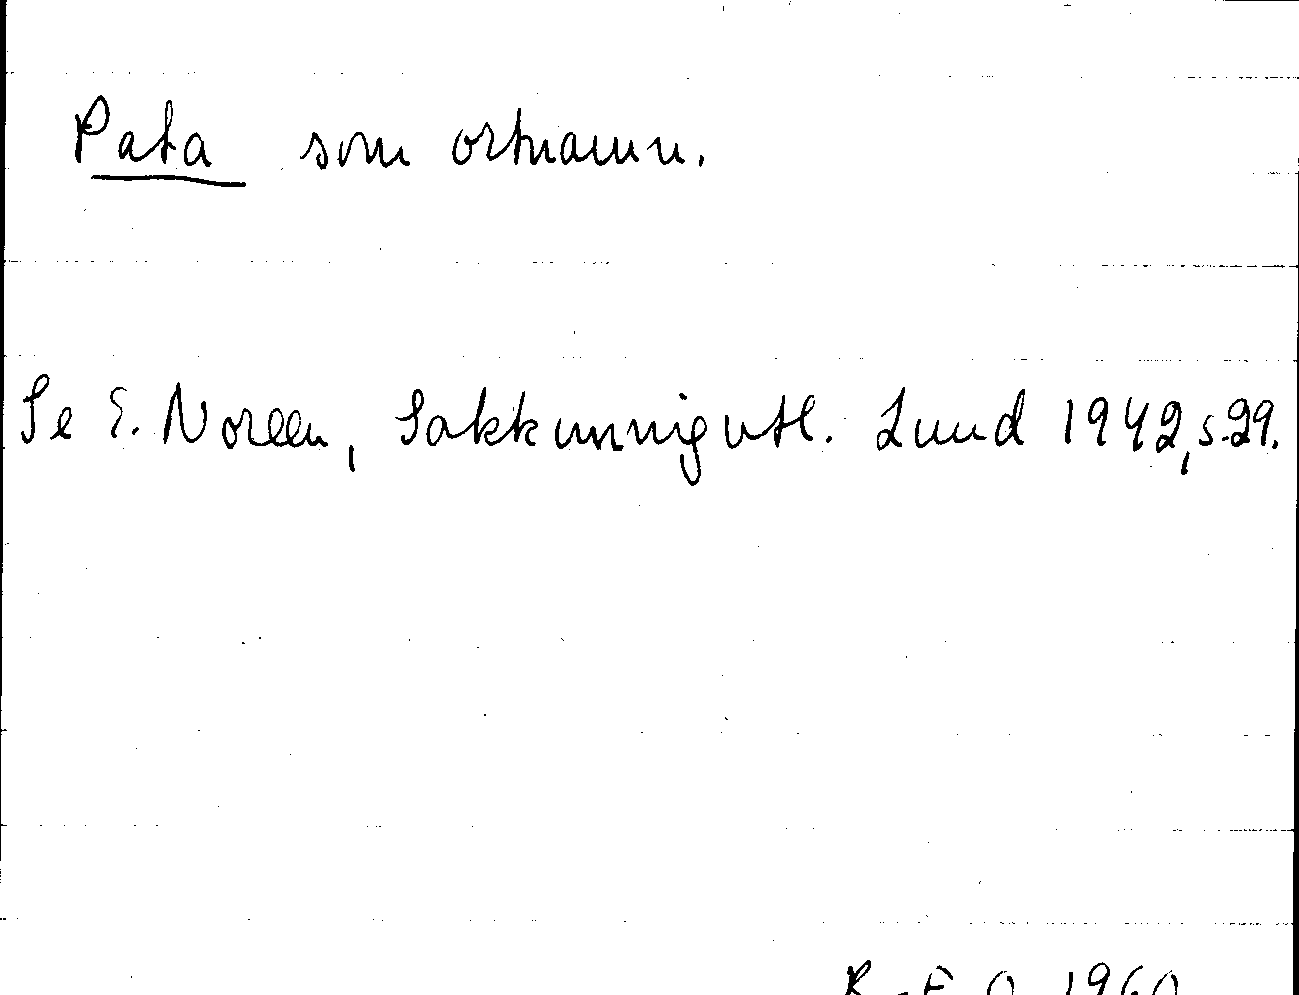 Pata som ortnamn.
Se E. Noreen, Sakkunnigutl. Lund 1942, s. 29.
R-E O 1960